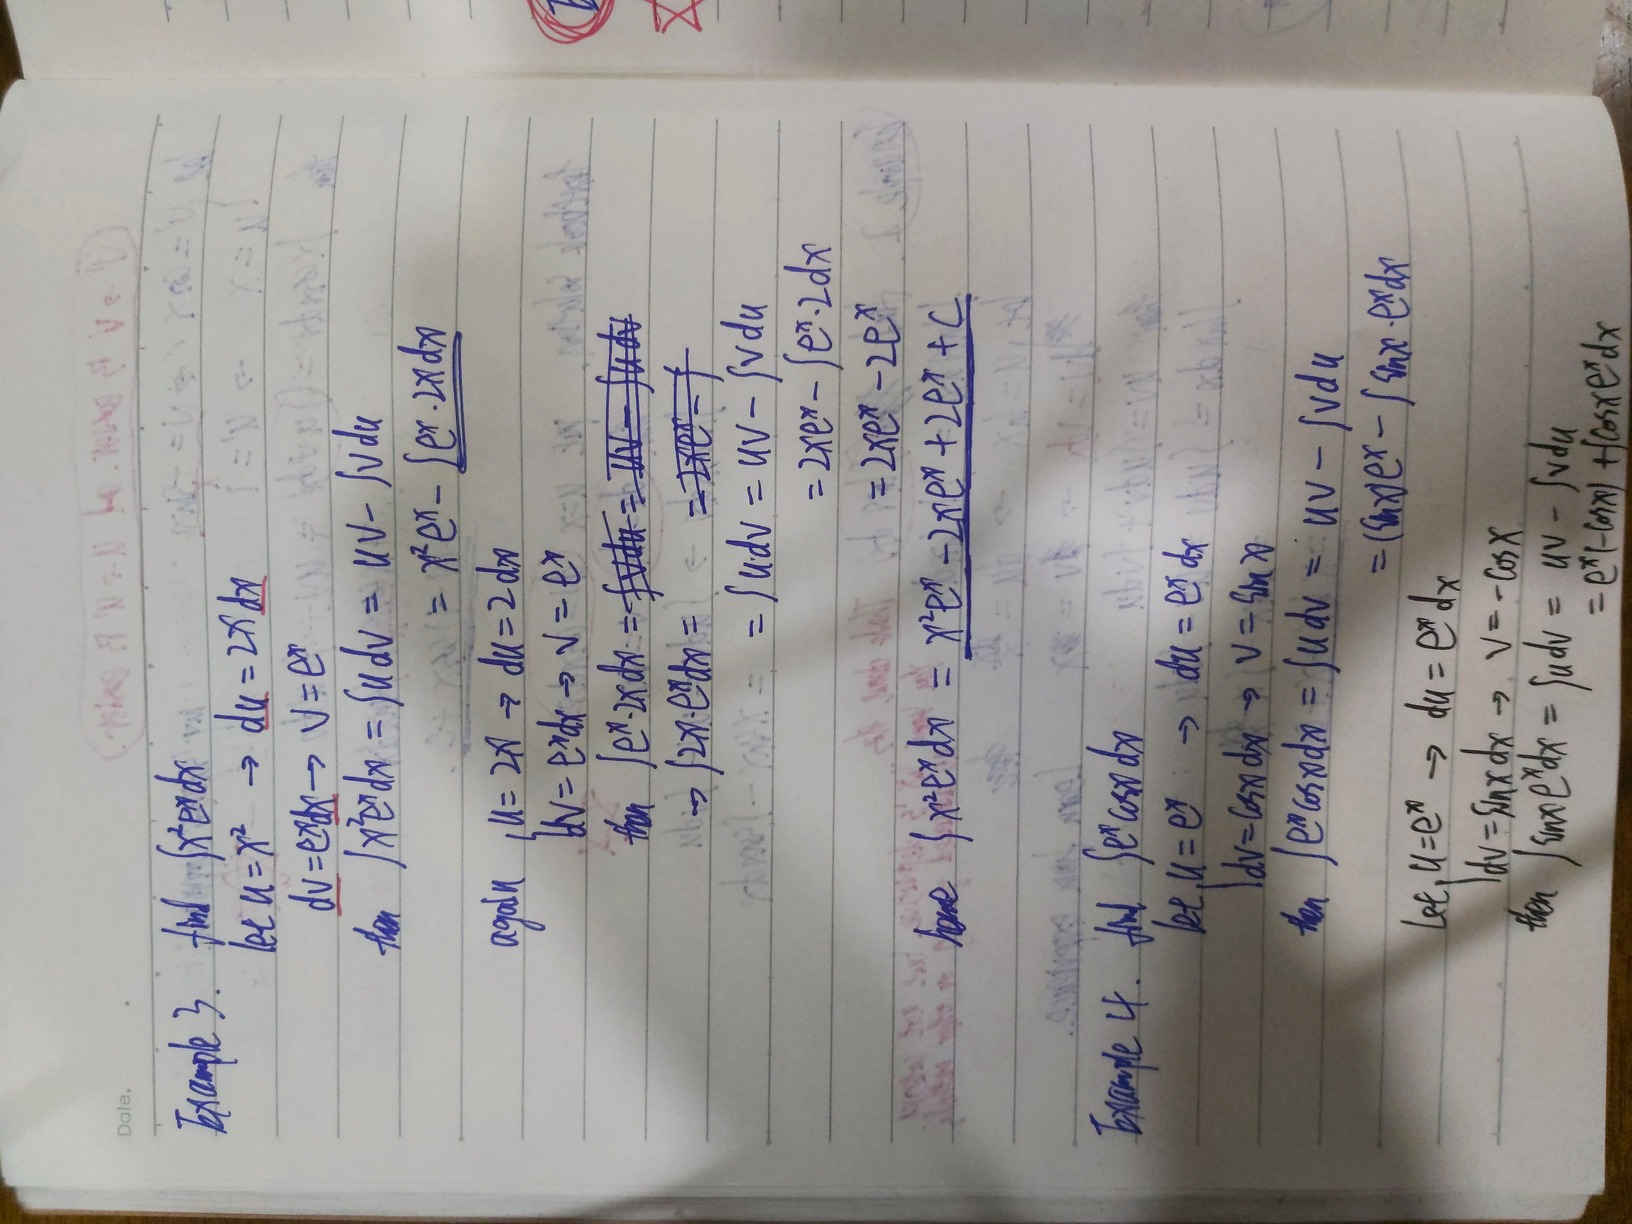 Date.
Example 3. find ∫x²eˣdx
let u = x² → du = 2x dx
dv = eˣdx → v = eˣ
then ∫x²eˣdx = ∫u dv = uv - ∫v du
= x²eˣ - ∫eˣ·2x dx
again u = 2x → du = 2 dx
dv = eˣdx → v = eˣ
then ∫eˣ·2x dx = ∫v du = uv - ∫u dv
→ ∫2x·eˣdx = = 2xeˣ - ∫
= ∫u·dv = uv - ∫v du
= 2xeˣ - ∫eˣ·2dx
= 2xeˣ - 2eˣ
∫x²eˣdx = x²eˣ - 2xeˣ + 2eˣ + C
Example 4. find ∫eˣcosx dx
let u = eˣ → du = eˣ dx
dv = cosx dx → v = sinx
then ∫eˣcosx dx = ∫u dv = uv - ∫v du
= (sinx)eˣ - ∫sinx·eˣdx
Let u = eˣ → du = eˣ dx
dv = sinx dx → v = -cosx
then ∫sinx eˣdx = ∫u dv = uv - ∫v du
= eˣ(-cosx) + ∫cosx eˣdx